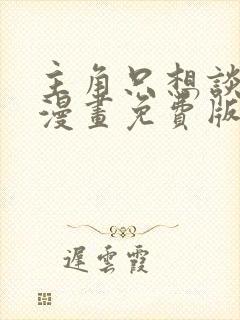 主角只想談
漫畫免費版
遲雲霞